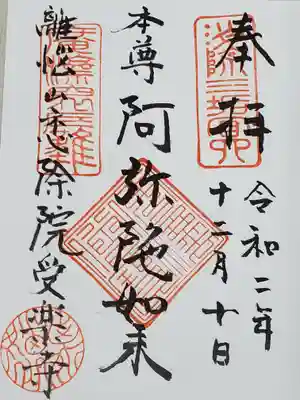 奉拝
令和二年
十二月十日
本尊
阿弥陀如来
離悩山悉除院受楽寺